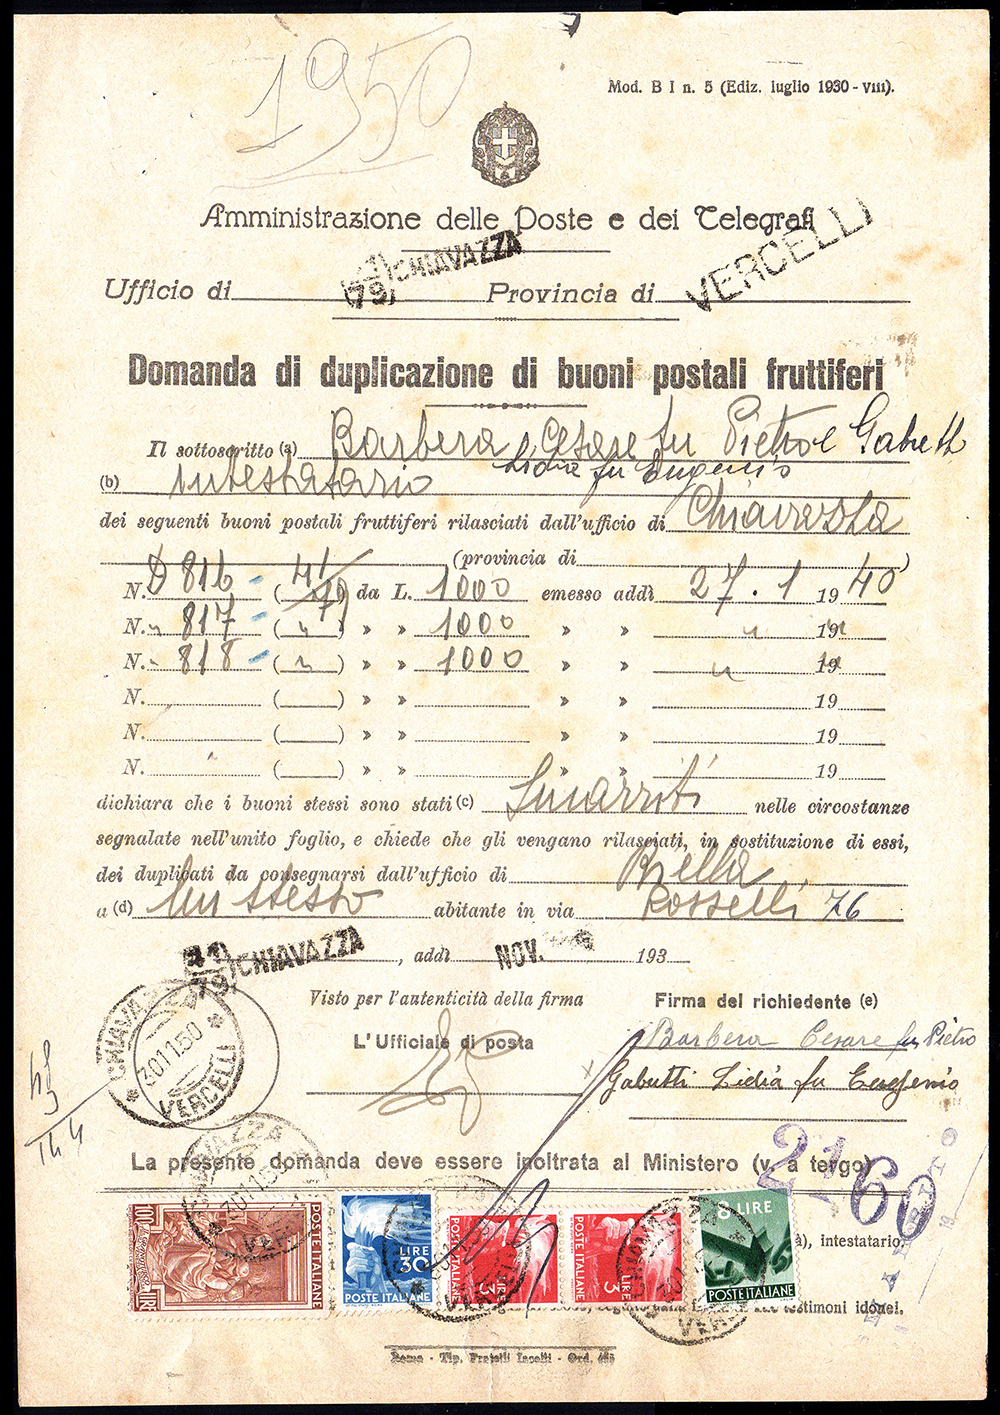 1950
Mod. B I n. 5 (Ediz. luglio 1930 - VIII).
Amministrazione delle Poste e dei Telegrafi
Ufficio di (79) CHIAVAZZA Provincia di VERCELLI
Domanda di duplicazione di buoni postali fruttiferi
Il sottoscritto (a) Barbera Cesare fu Pietro e Gabutti
Lidia fu Eugenio
(b) intestatario
dei seguenti buoni postali fruttiferi rilasciati dall'ufficio di Chiavazza
(provincia di )
N. D 816 - (41/79) da L. 1000 emesso addì 27 . 1 1940
N. " 817 - ( " ) » » 1000 » » " 19 "
N. " 818 - ( " ) » » 1000 » » " 19 "
N. ( ) » » » » 19
N. ( ) » » » » 19
N. ( ) » » » » 19
dichiara che i buoni stessi sono stati (c) Smarriti nelle circostanze
segnalate nell'unito foglio, e chiede che gli vengano rilasciati, in sostituzione di essi,
dei duplicati da consegnarsi dall'ufficio di Biella
a (d) lui stesso abitante in via Rosselli 76
(41/79) CHIAVAZZA , addì NOV. 193
Visto per l'autenticità della firma Firma del richiedente (e)
L'Ufficiale di posta Barbera Cesare fu Pietro
Gabutti Lidia fu Eugenio
CHIAVAZZA
30.11.50
VERCELLI
La presente domanda deve essere inoltrata al Ministero (v. a tergo)
2160
100 LIRE POSTE ITALIANE
LIRE 30 POSTE ITALIANE
LIRE 3 POSTE ITALIANE
LIRE 3 POSTE ITALIANE
8 LIRE POSTE ITALIANE
à), intestatario
testimoni idonei.
Roma - Tip. Fratelli Iacelli - Ord.